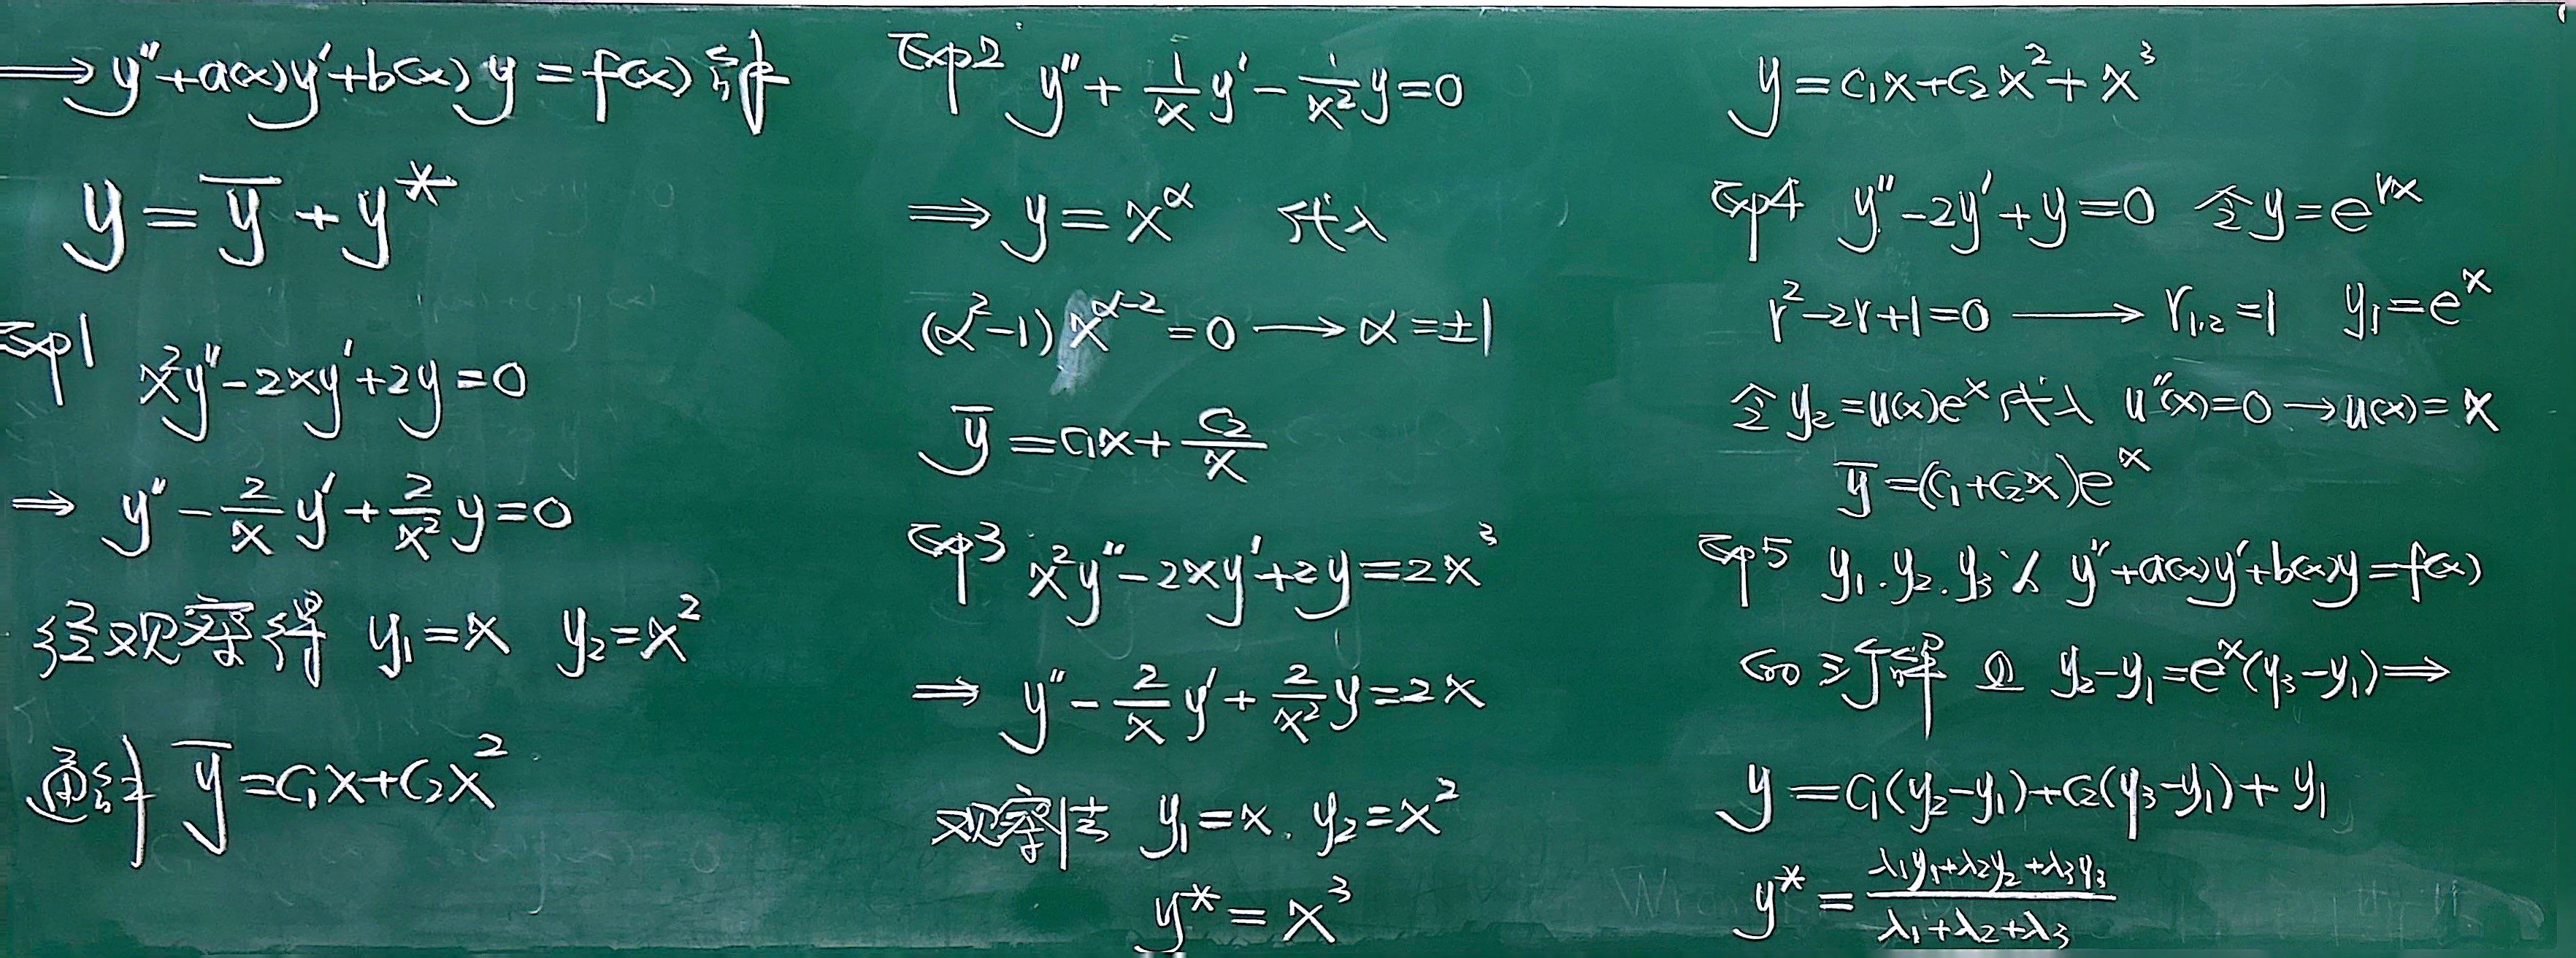 ⟹ y″+a(x)y′+b(x)y=f(x)
y=ȳ+y*
Exp1 x²y″-2xy′+2y=0
⇒ y″-\frac{2}{x}y′+\frac{2}{x²}y=0
经观察得 y₁=x y₂=x²
通解 ȳ=C₁x+C₂x²
Exp2 y″+\frac{1}{x}y′-\frac{1}{x²}y=0
⇒ y=x^α 代入
(α²-1)x^{α-2}=0 → α=±1
ȳ=C₁x+\frac{C₂}{x}
Exp3 x²y″-2xy′+2y=2x³
⇒ y″-\frac{2}{x}y′+\frac{2}{x²}y=2x
观察法 y₁=x. y₂=x²
y*=x³
y=C₁x+C₂x²+x³
Exp4 y″-2y′+y=0 令y=e^{rx}
r²-2r+1=0 → r₁,₂=1 y₁=e^x
令y₂=u(x)e^x代入 u″(x)=0→u(x)=x
ȳ=(C₁+C₂x)e^x
Exp5 y₁.y₂.y₃为 y″+a(x)y′+b(x)y=f(x)
的三个解 且 y₂-y₁=e^x(y₃-y₁)⇒
y=C₁(y₂-y₁)+C₂(y₃-y₁)+y₁
y*=\frac{λ₁y₁+λ₂y₂+λ₃y₃}{λ₁+λ₂+λ₃}